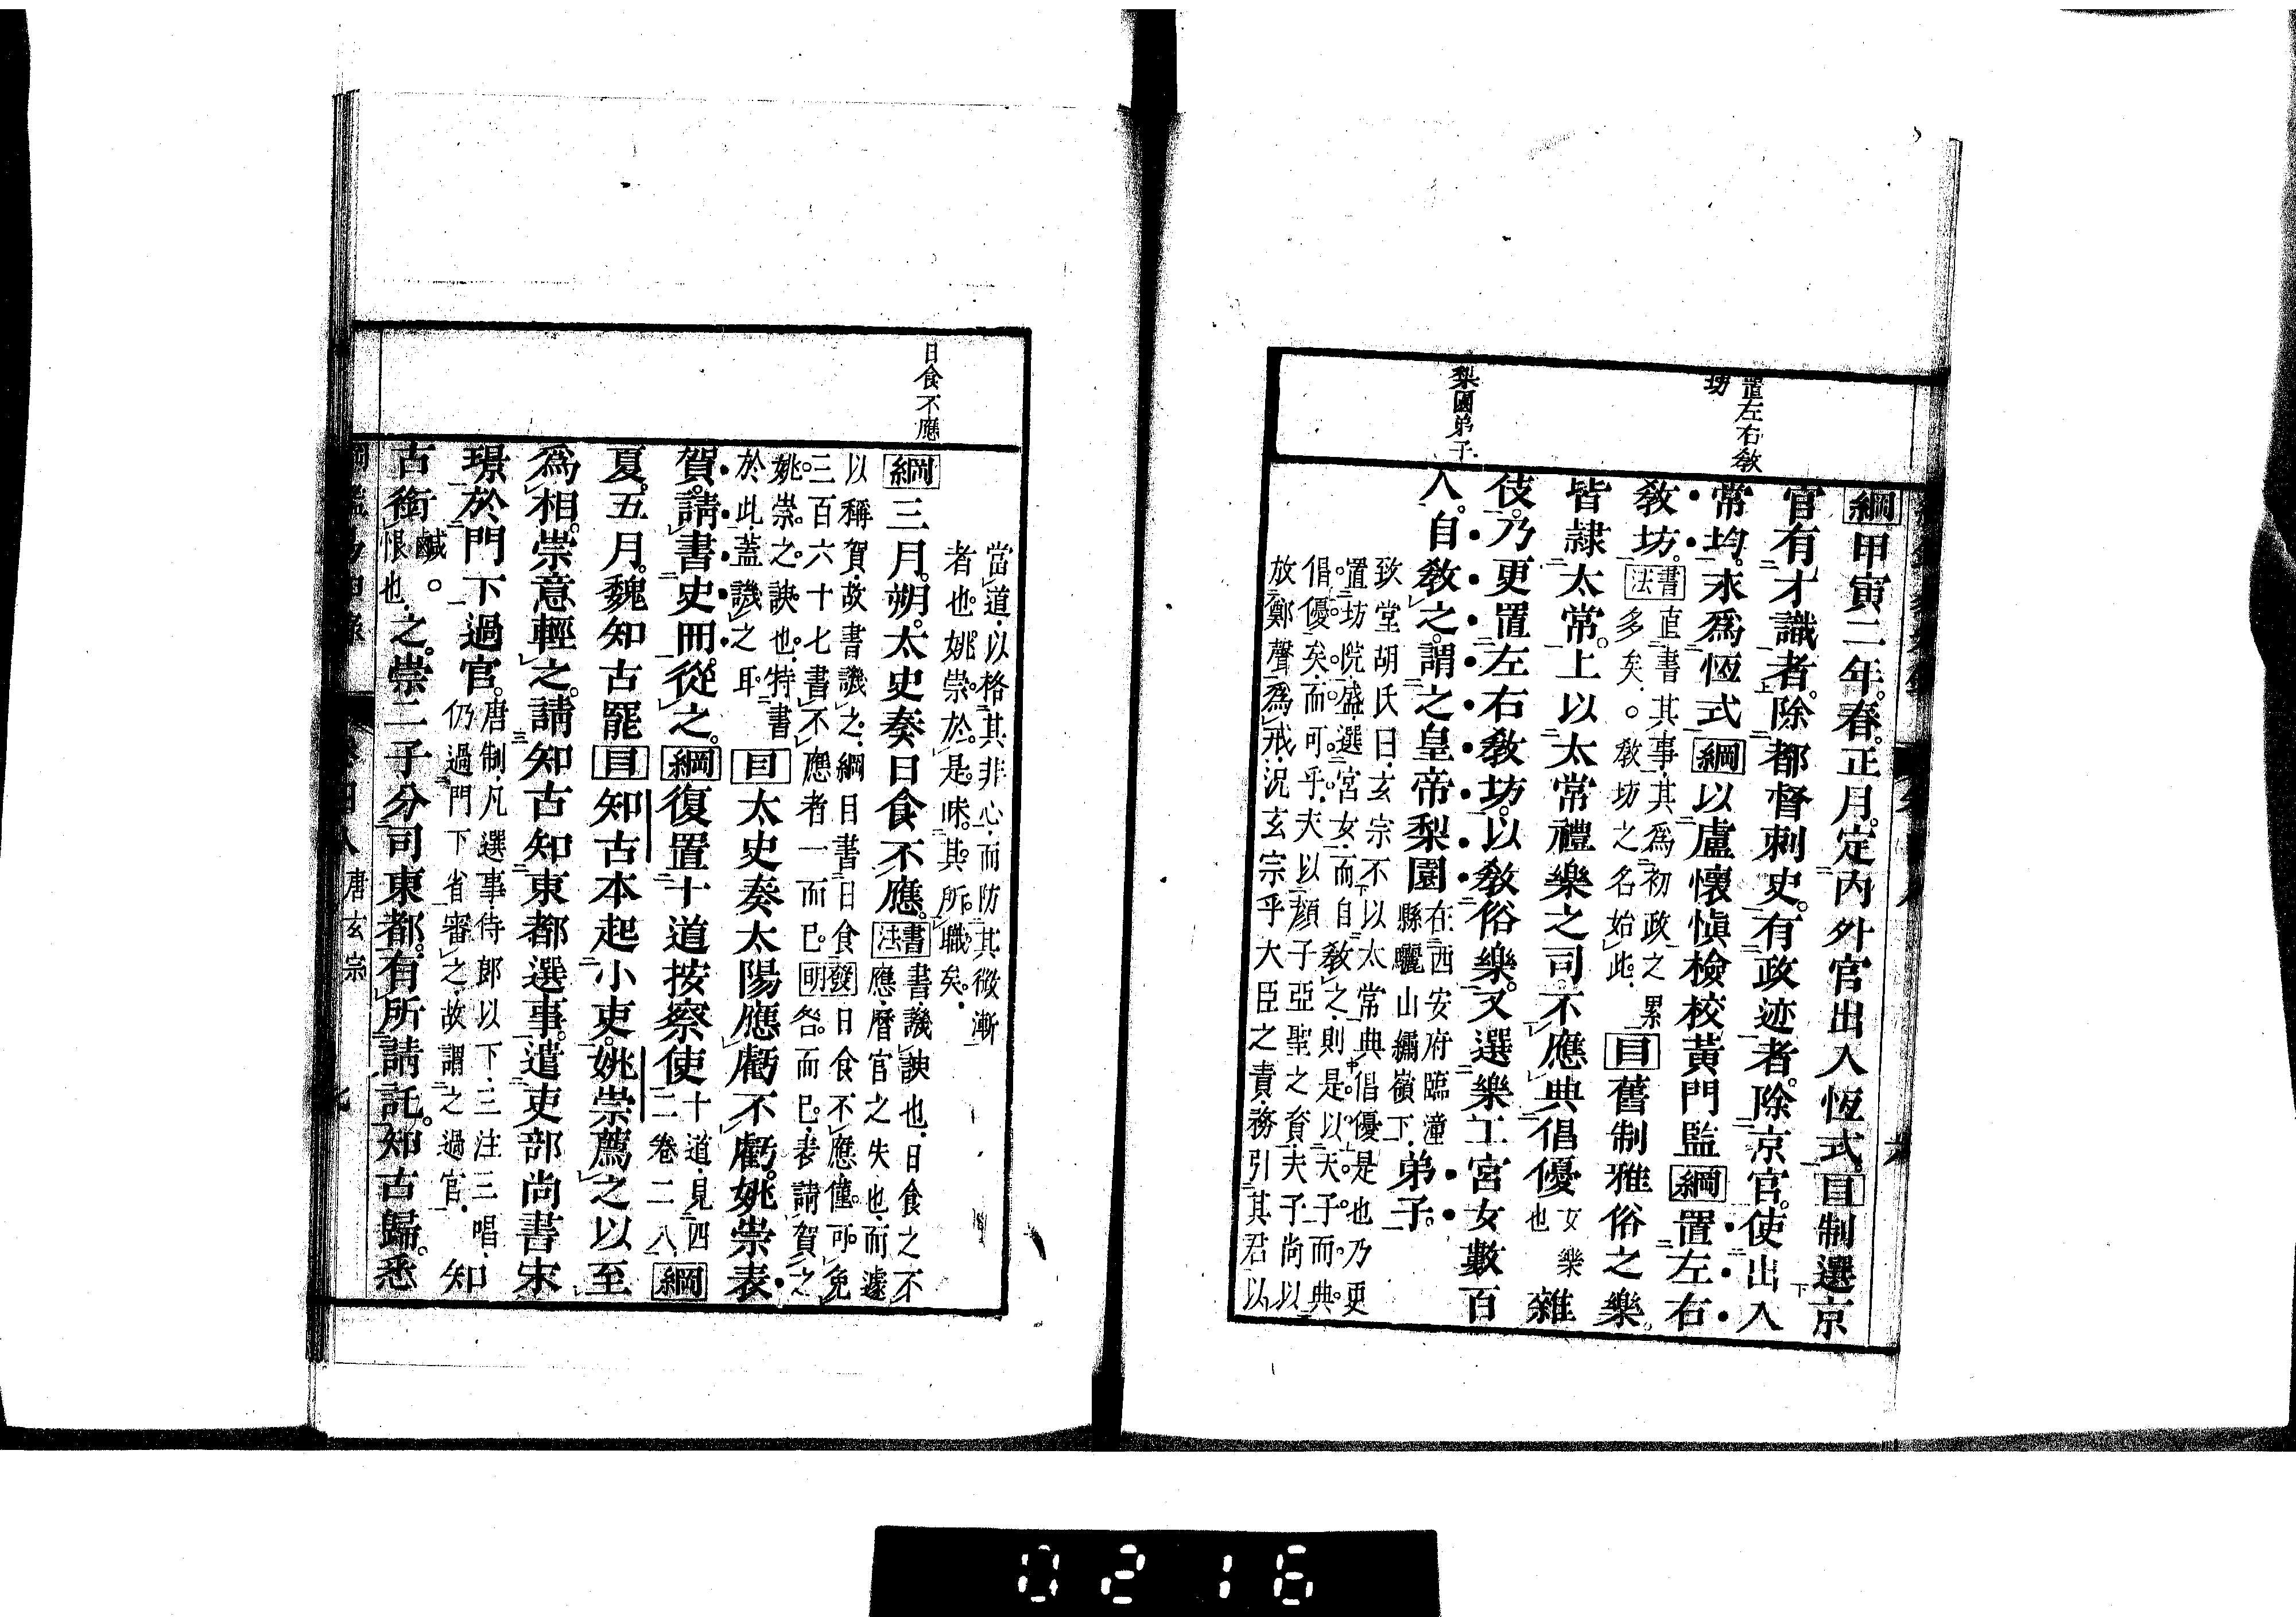 置左右教
坊
梨園弟子
綱甲寅二年。春。正月。定內外官出入恆式。目制選京
官有才識者。除都督刺史。有政迹者。除京官。使出入
常均。永爲恆式綱以盧懷愼檢校黃門監綱置左右
教坊。書法直書其事、其爲初政之累
多矣。○教坊之名始此。目舊制雅俗之樂。
皆隷太常。上以太常禮樂之司。不應典倡優女樂也雜
伎。乃更置左右教坊。以教俗樂。又選樂工宮女數百
人。自教之。謂之皇帝梨園在西安府臨潼
縣驪山繡嶺下、弟子。
致堂胡氏曰、玄宗不以太常典倡優是也乃更
置坊院、盛選宮女、而自教之、則是以天子而典
倡優矣、而可乎、夫以顔子亞聖之資、夫子尚以
放鄭聲爲戒、況玄宗乎大臣之責、務引其君以
日食不應
當道、以格其非心、而防其微漸
者也。姚崇於是昧其所職矣、
綱三月。朔。太史奏日食不應。書法書、譏諛也、日食之不
應、曆官之失也、而遽
以稱賀、故書譏之、綱目書日食
三百六十七書不應者一而已。發明日食不應僅可免
咎。而已。表請賀之
姚崇之諛也、特書
於此、蓋譏之耳。目太史奏太陽應虧不虧。姚崇表
賀。請書史冊。從之。綱復置十道按察使十道、見四
二卷二八綱
夏。五月。魏知古罷目知古本起小吏。姚崇薦之以至
爲相。崇意輕之。請知古知東都選事。遣吏部尚書宋
璟於門下過官。唐制、凡選事、侍郎以下、三注三唱、
仍過門下省審之、故謂之過官、知
古銜鹹。恨也、之。崇二子分司東都。有所請託。知古歸。悉
唐玄宗
0216